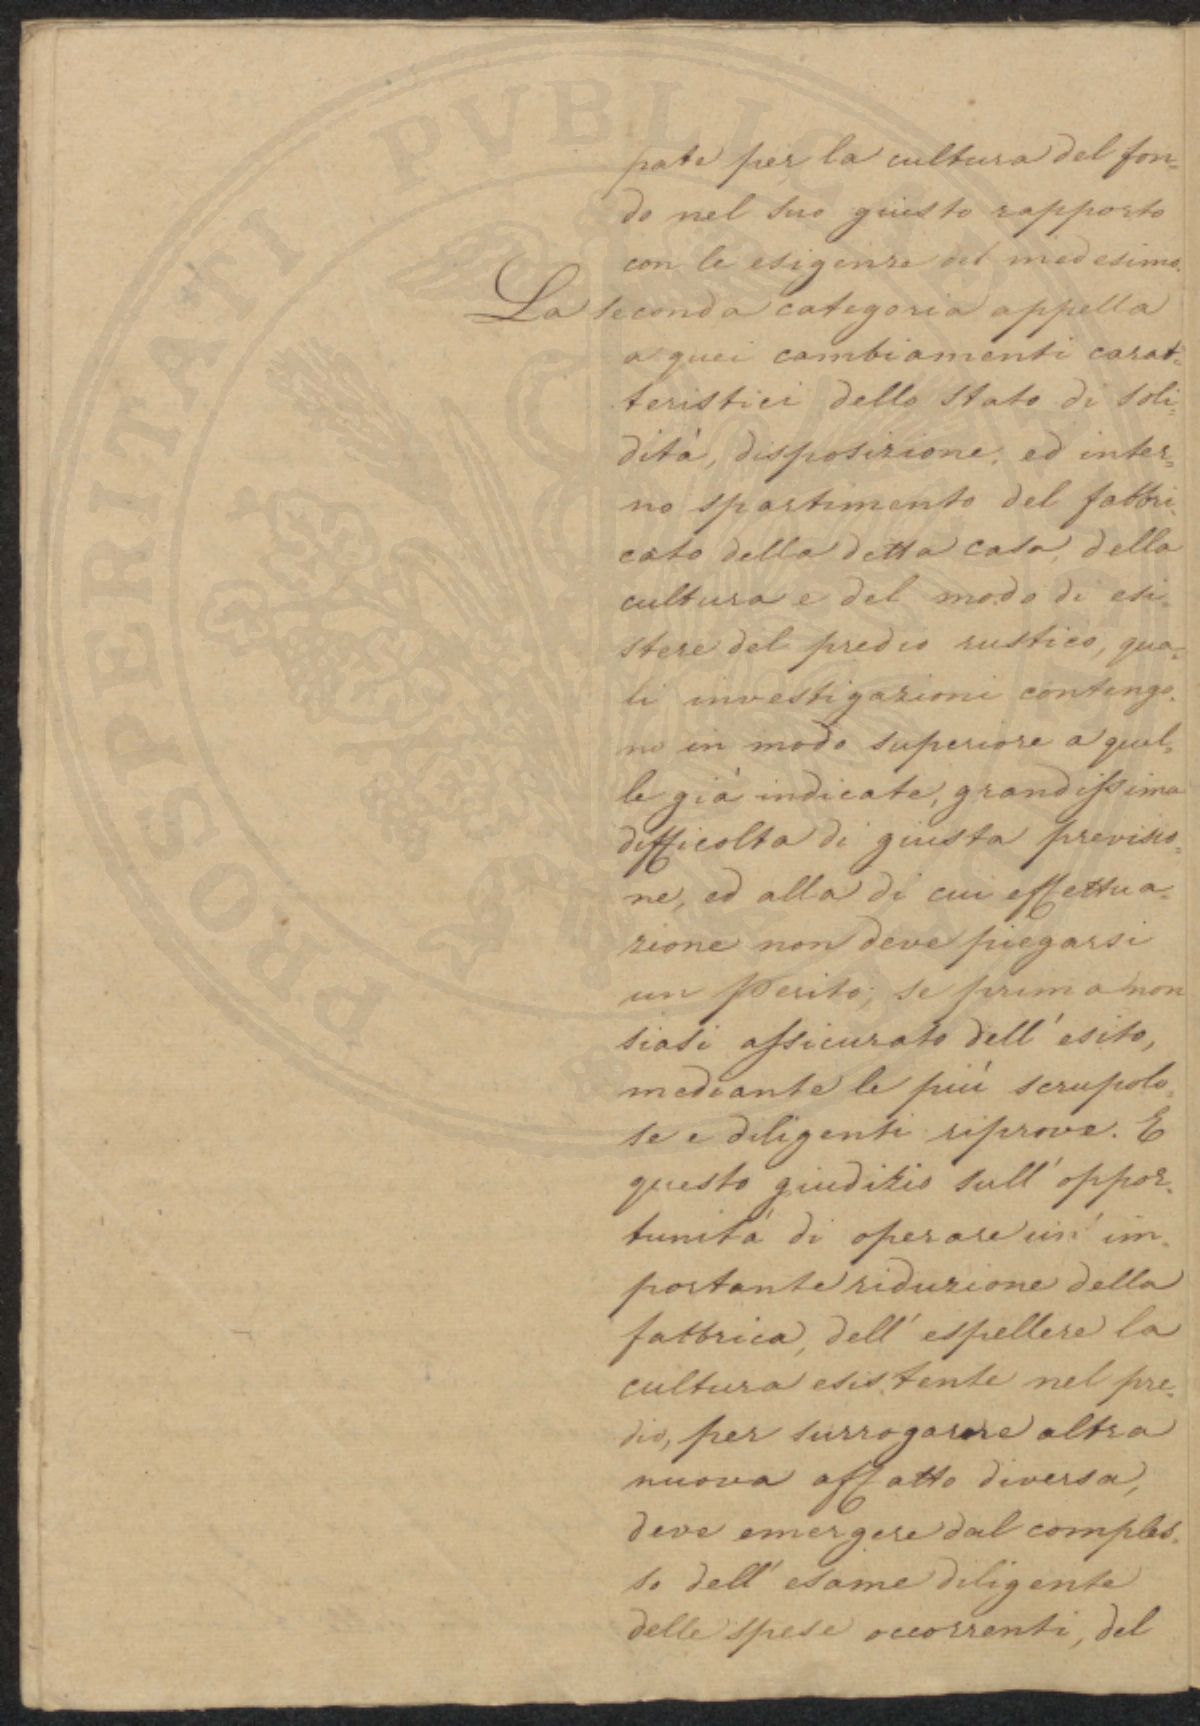 PROSPERITATI PVBLICAE
pate per la cultura del fon=
do nel suo giusto rapporto
con le esigenze del medesimo.
La seconda categoria appella
a quei cambiamenti carat=
teristici dello stato di soli=
dità, disposizione, ed inter=
no spartimento del fabbri=
cato della detta casa, della
cultura e del modo di esi=
stere del predio rustico, qua=
li investigazioni contengo=
no in modo superiore a quel=
le già indicate, grandissima
difficolta di giusta previsio=
ne, ed alla di cui effettua=
zione non deve piegarsi
un Perito, se prima non
siasi assicurato dell' esito,
mediante le più scrupolo=
se e diligenti riprove. E
questo giudizio sull' oppor=
tunità di operare un' im=
portante riduzione della
fabbrica, dell' espellere la
cultura esistente nel pre=
dio, per surrogarne altra
nuova affatto diversa,
deve emergere dal comples=
so dell' esame diligente
delle spese occorrenti, del